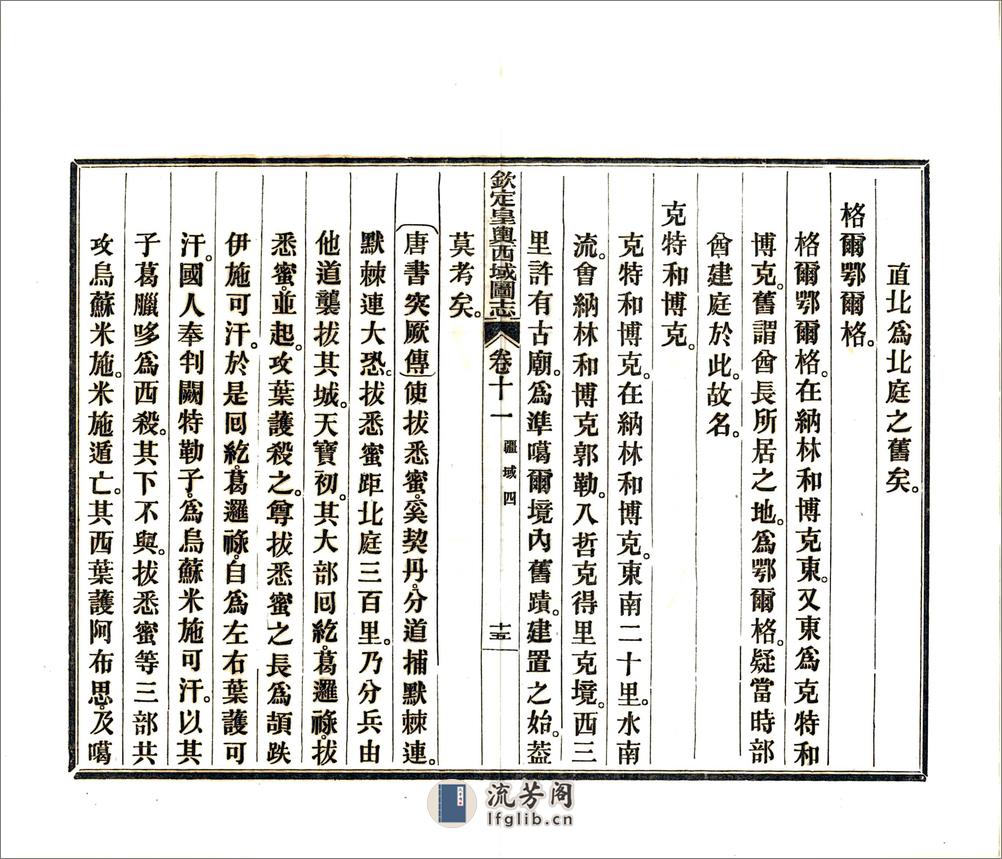 直北爲北庭之舊矣。
格爾鄂爾格。
格爾鄂爾格。在納林和博克東。又東爲克特和
博克。舊謂酋長所居之地。爲鄂爾格。疑當時部
酋建庭於此。故名。
克特和博克。
克特和博克。在納林和博克。東南二十里。水南
流。會納林和博克郭勒。入哲克得里克境。西三
里許有古廟。爲準噶爾境內舊蹟。建置之始。蓋
莫考矣。
欽定皇輿西域圖志 卷十一 疆域四 十五
(唐書突厥傳)使拔悉蜜。奚契丹。分道捕默棘連。
默棘連大恐。拔悉蜜距北庭三百里。乃分兵由
他道襲拔其城。天寶初。其大部回紇。葛邏祿。拔
悉蜜。並起。攻葉護殺之。尊拔悉蜜之長爲頡跌
伊施可汗。於是回紇。葛邏祿。自爲左右葉護可
汗。國人奉判闕特勒子。爲烏蘇米施可汗。以其
子葛臘哆爲西殺。其下不與。拔悉蜜等三部共
攻烏蘇米施。米施遁亡。其西葉護阿布思。及噶
流芳阁
lfglib.cn